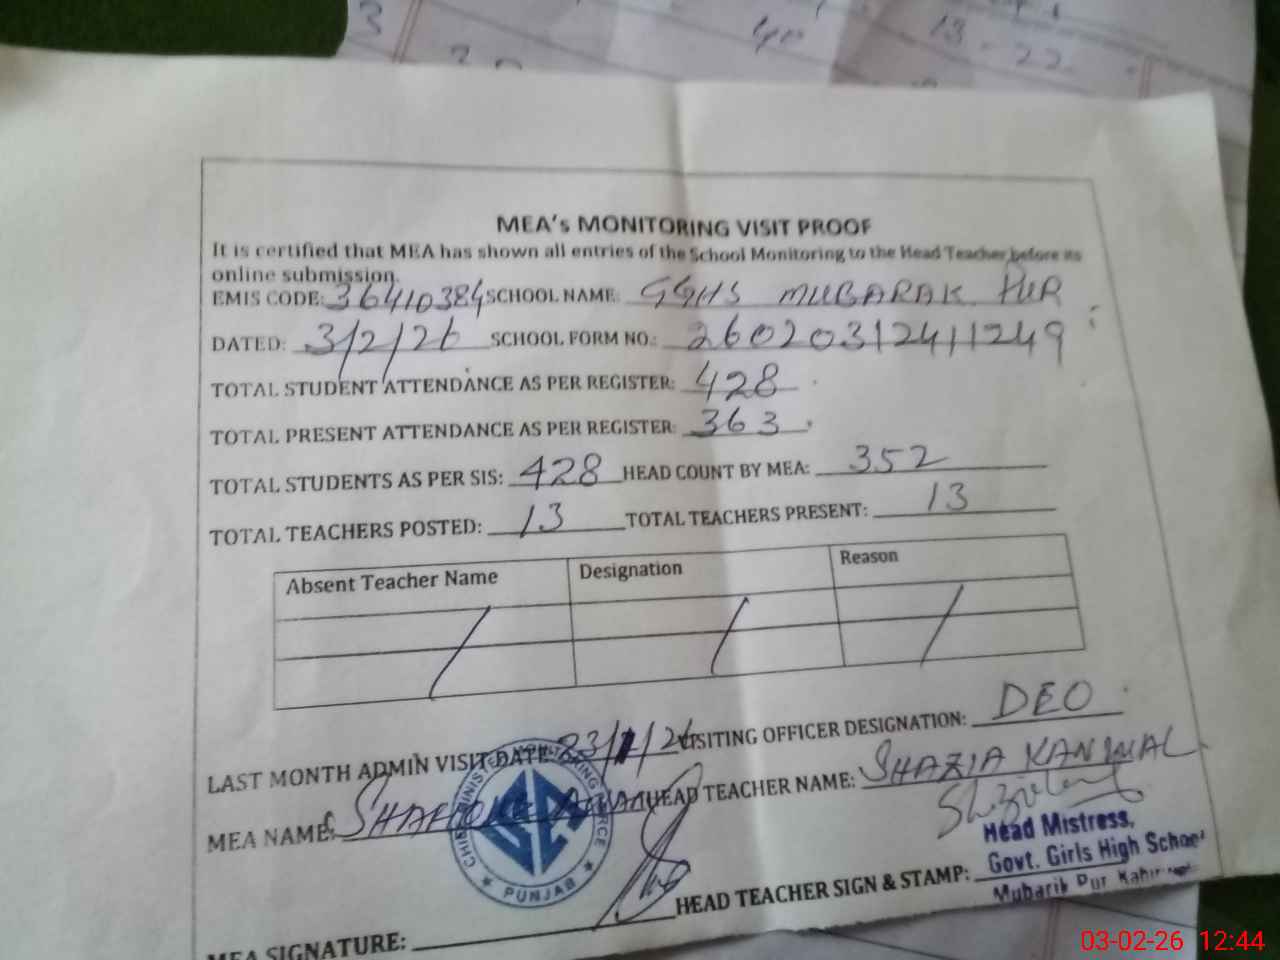 3
13 - 22
MEA's MONITORING VISIT PROOF
It is certified that MEA has shown all entries of the School Monitoring to the Head Teacher before its
online submission.
EMIS CODE: 36410384 SCHOOL NAME: GGHS MUBARAK PUR
DATED: 3/2/26 SCHOOL FORM NO.: 26020312411249
TOTAL STUDENT ATTENDANCE AS PER REGISTER: 428
TOTAL PRESENT ATTENDANCE AS PER REGISTER: 363
TOTAL STUDENTS AS PER SIS: 428 HEAD COUNT BY MEA: 352
TOTAL TEACHERS POSTED: 13 TOTAL TEACHERS PRESENT: 13
Absent Teacher Name Designation Reason
LAST MONTH ADMIN VISIT DATE 23/1/26 VISITING OFFICER DESIGNATION: DEO
MEA NAME: HEAD TEACHER NAME: SHAZIA KANWAL
CHIEF MINISTER MONITORING FORCE
PUNJAB
Head Mistress,
Govt. Girls High School
Mubarik Pur
HEAD TEACHER SIGN & STAMP:
MEA SIGNATURE:
03-02-26 12:44